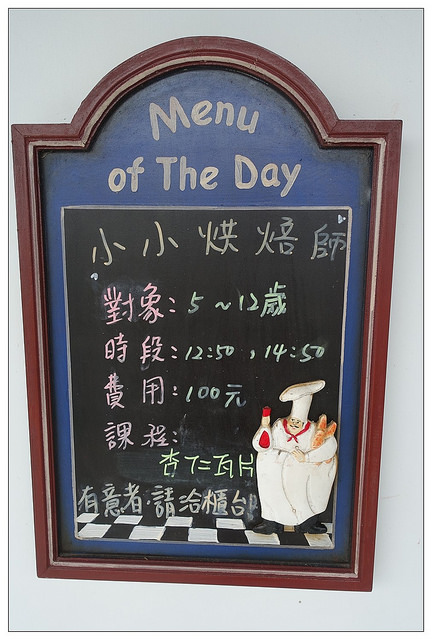 Menu
of The Day
小小烘焙師
對象：5～12歲
時段：12:50，14:50
費用：100元
課程：
杏仁瓦片
有意者·請洽櫃台